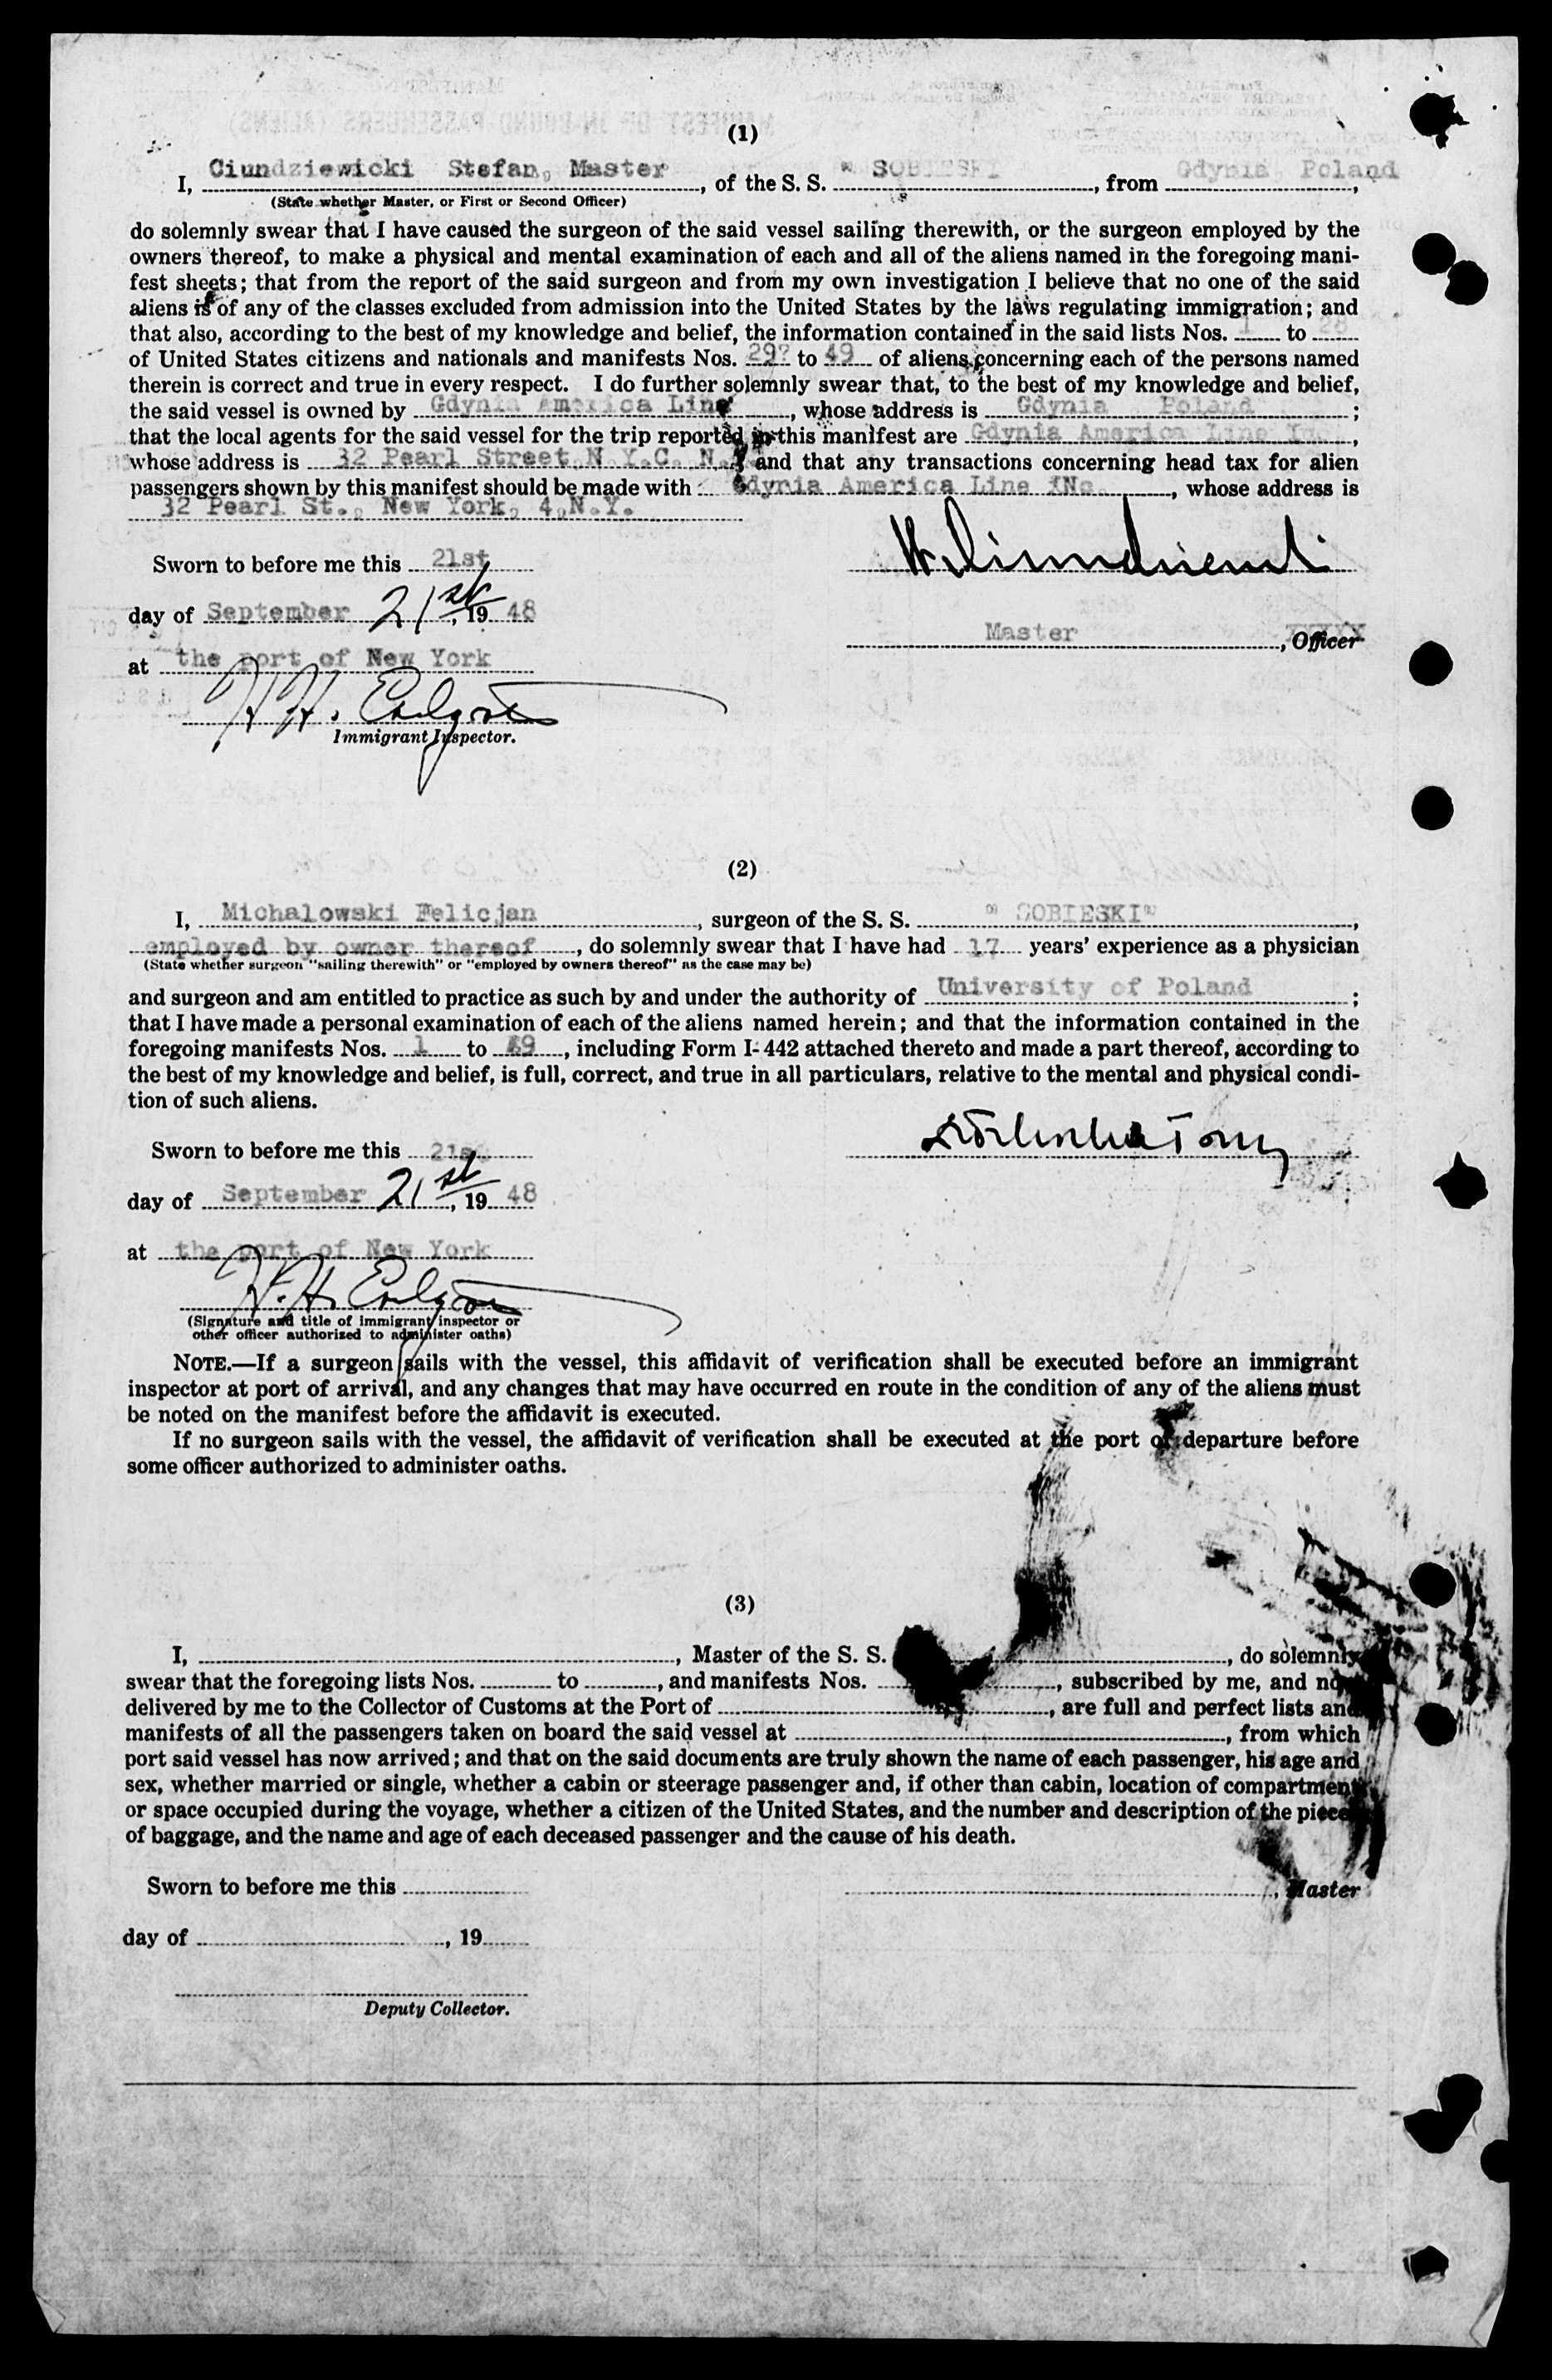 (1)
I, Ciundziewicki Stefan, Master, of the S. S. " SOBIESKI, from Gdynia, Poland,
(State whether Master, or First or Second Officer)
do solemnly swear that I have caused the surgeon of the said vessel sailing therewith, or the surgeon employed by the
owners thereof, to make a physical and mental examination of each and all of the aliens named in the foregoing mani-
fest sheets; that from the report of the said surgeon and from my own investigation I believe that no one of the said
aliens is of any of the classes excluded from admission into the United States by the laws regulating immigration; and
that also, according to the best of my knowledge and belief, the information contained in the said lists Nos. 1 to 28
of United States citizens and nationals and manifests Nos. 29? to 49 of aliens, concerning each of the persons named
therein is correct and true in every respect. I do further solemnly swear that, to the best of my knowledge and belief,
the said vessel is owned by Gdynia America Line, whose address is Gdynia Poland;
that the local agents for the said vessel for the trip reported in this manifest are Gdynia America Line Inc,
whose address is 32 Pearl Street, N.Y.C. N.Y. and that any transactions concerning head tax for alien
passengers shown by this manifest should be made with Gdynia America Line INc, whose address is
32 Pearl St., New York, 4,N.Y.
Sworn to before me this 21st
day of September 21st, 19 48
Master, Officer
at the port of New York
Immigrant Inspector.
(2)
I, Michalowski Felicjan, surgeon of the S. S. " SOBIESKI"
employed by owner thereof, do solemnly swear that I have had 17 years' experience as a physician
(State whether surgeon "sailing therewith" or "employed by owners thereof" as the case may be)
and surgeon and am entitled to practice as such by and under the authority of University of Poland;
that I have made a personal examination of each of the aliens named herein; and that the information contained in the
foregoing manifests Nos. 1 to 49, including Form I-442 attached thereto and made a part thereof, according to
the best of my knowledge and belief, is full, correct, and true in all particulars, relative to the mental and physical condi-
tion of such aliens.
Sworn to before me this 21st
day of September 21st, 19 48
at the port of New York
(Signature and title of immigrant inspector or
other officer authorized to administer oaths)
NOTE.—If a surgeon sails with the vessel, this affidavit of verification shall be executed before an immigrant
inspector at port of arrival, and any changes that may have occurred en route in the condition of any of the aliens must
be noted on the manifest before the affidavit is executed.
If no surgeon sails with the vessel, the affidavit of verification shall be executed at the port of departure before
some officer authorized to administer oaths.
(3)
I, , Master of the S. S. , do solemnly
swear that the foregoing lists Nos. to , and manifests Nos. , subscribed by me, and now
delivered by me to the Collector of Customs at the Port of , are full and perfect lists and
manifests of all the passengers taken on board the said vessel at , from which
port said vessel has now arrived; and that on the said documents are truly shown the name of each passenger, his age and
sex, whether married or single, whether a cabin or steerage passenger and, if other than cabin, location of compartment
or space occupied during the voyage, whether a citizen of the United States, and the number and description of the pieces
of baggage, and the name and age of each deceased passenger and the cause of his death.
Sworn to before me this
, Master
day of , 19
Deputy Collector.